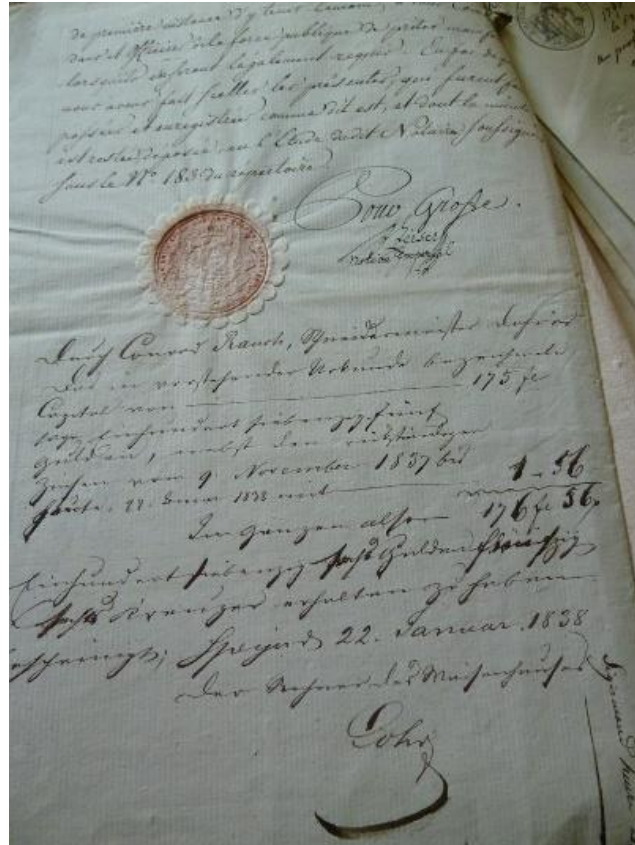 de première instance d'y tenir la main, à tous Com
dans et Officiers de la force publique de prêter main
lorsqu'ils en seront légalement requis. En foi de
nous avons fait sceller les présentes, qui furent
passées et enregistrées comme dit est, et dont la minute
est restée déposée en l'Etude dudit Notaire soussigné
sous le N° 183 du répertoire.
Pour Grosse.
notaire Impérial
Durch Conrad Rauch, Schneidermeister dahier
das in vorstehender Urkunde bezeichnete
Capital von 175 fl
sage Einhundert siebenzig fünf
Gulden, nebst den rückständigen
Zinsen vom 9. November 1837 bis
heute, 22. Januar 1838 mit 1 - 56
Im Ganzen also 176 fl 56
Einhundert siebenzig sechs Gulden fünfzig
sechs Kreuzer erhalten zu haben
bescheinigt; Speyer, 22. Januar 1838
Der Rechner des Waisenhauses